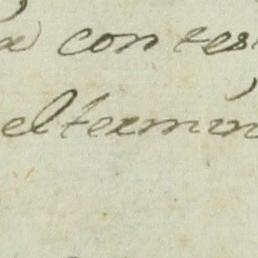 a contes
el termin